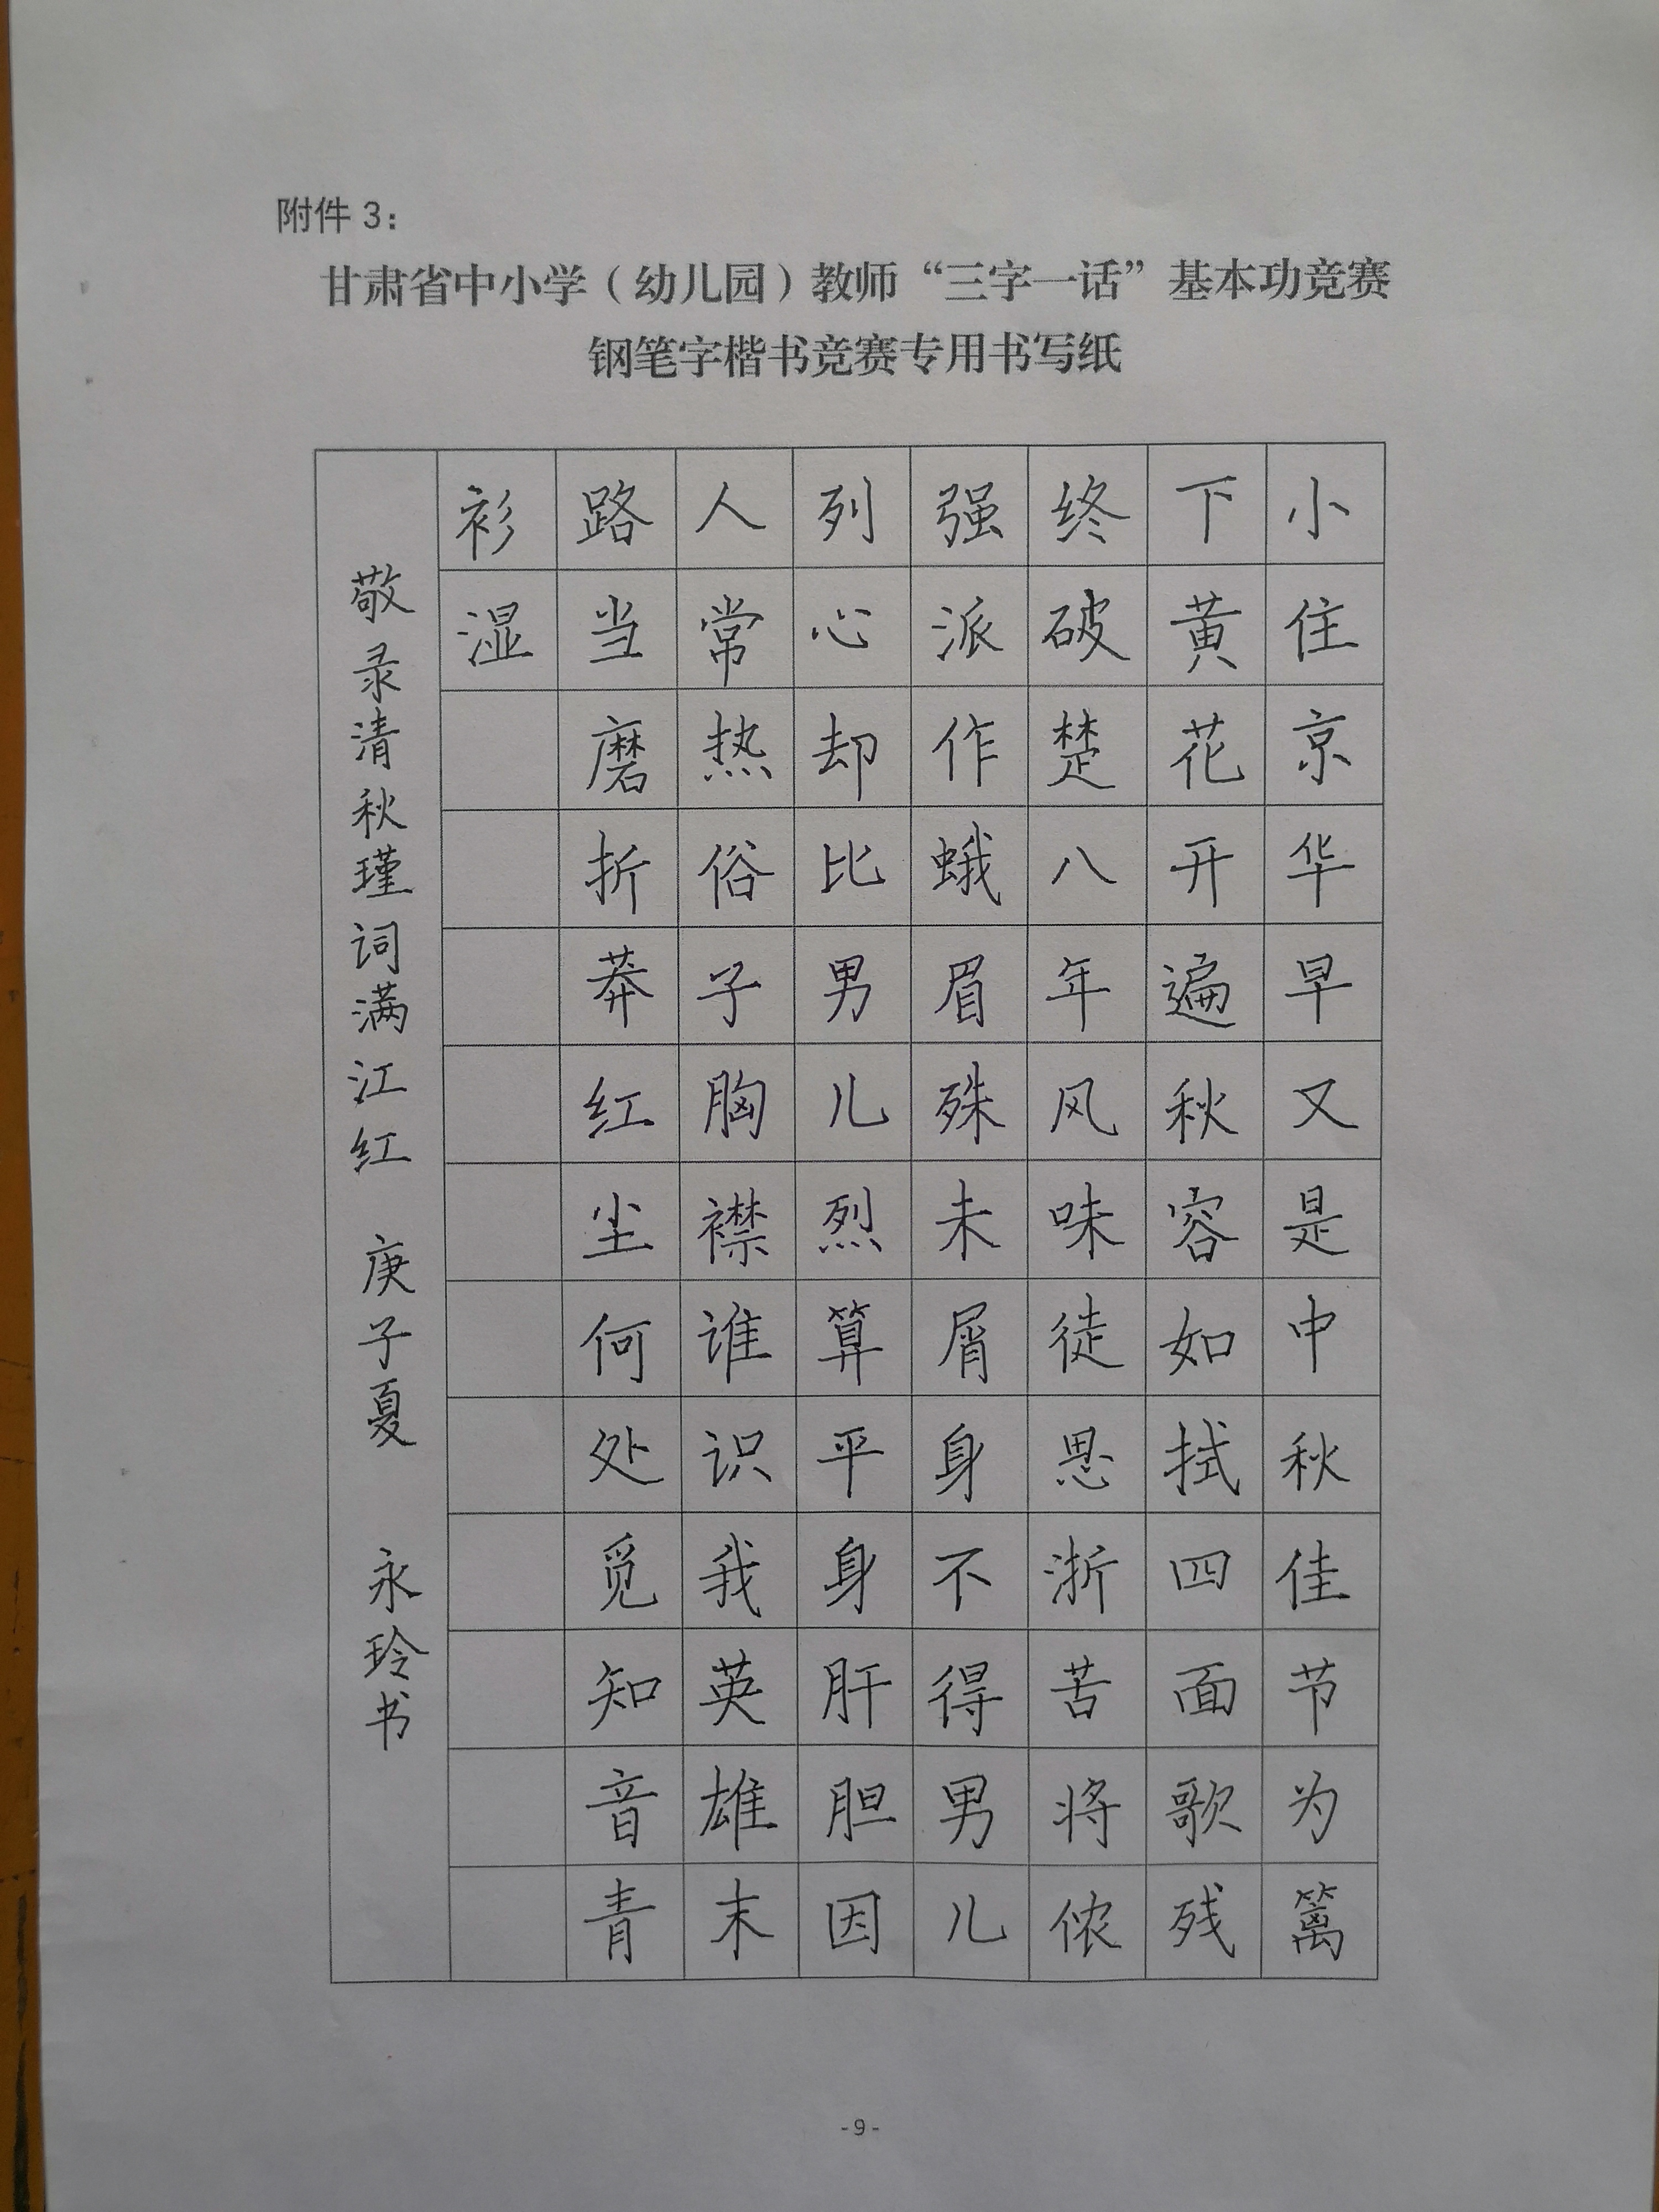 附件 3：
甘肃省中小学（幼儿园）教师“三字一话”基本功竞赛
钢笔字楷书竞赛专用书写纸
小住京华早又是中秋佳节为篱
下黄花开遍秋容如拭四面歌残
终破楚八年风味徒思浙苦将侬
强派作蛾眉殊未屑身不得男儿
列心却比男儿烈算平身肝胆因
人常热俗子胸襟谁识我英雄末
路当磨折莽红尘何处觅知音青
衫湿
敬录清秋瑾词满江红 庚子夏 永玲书
-9-